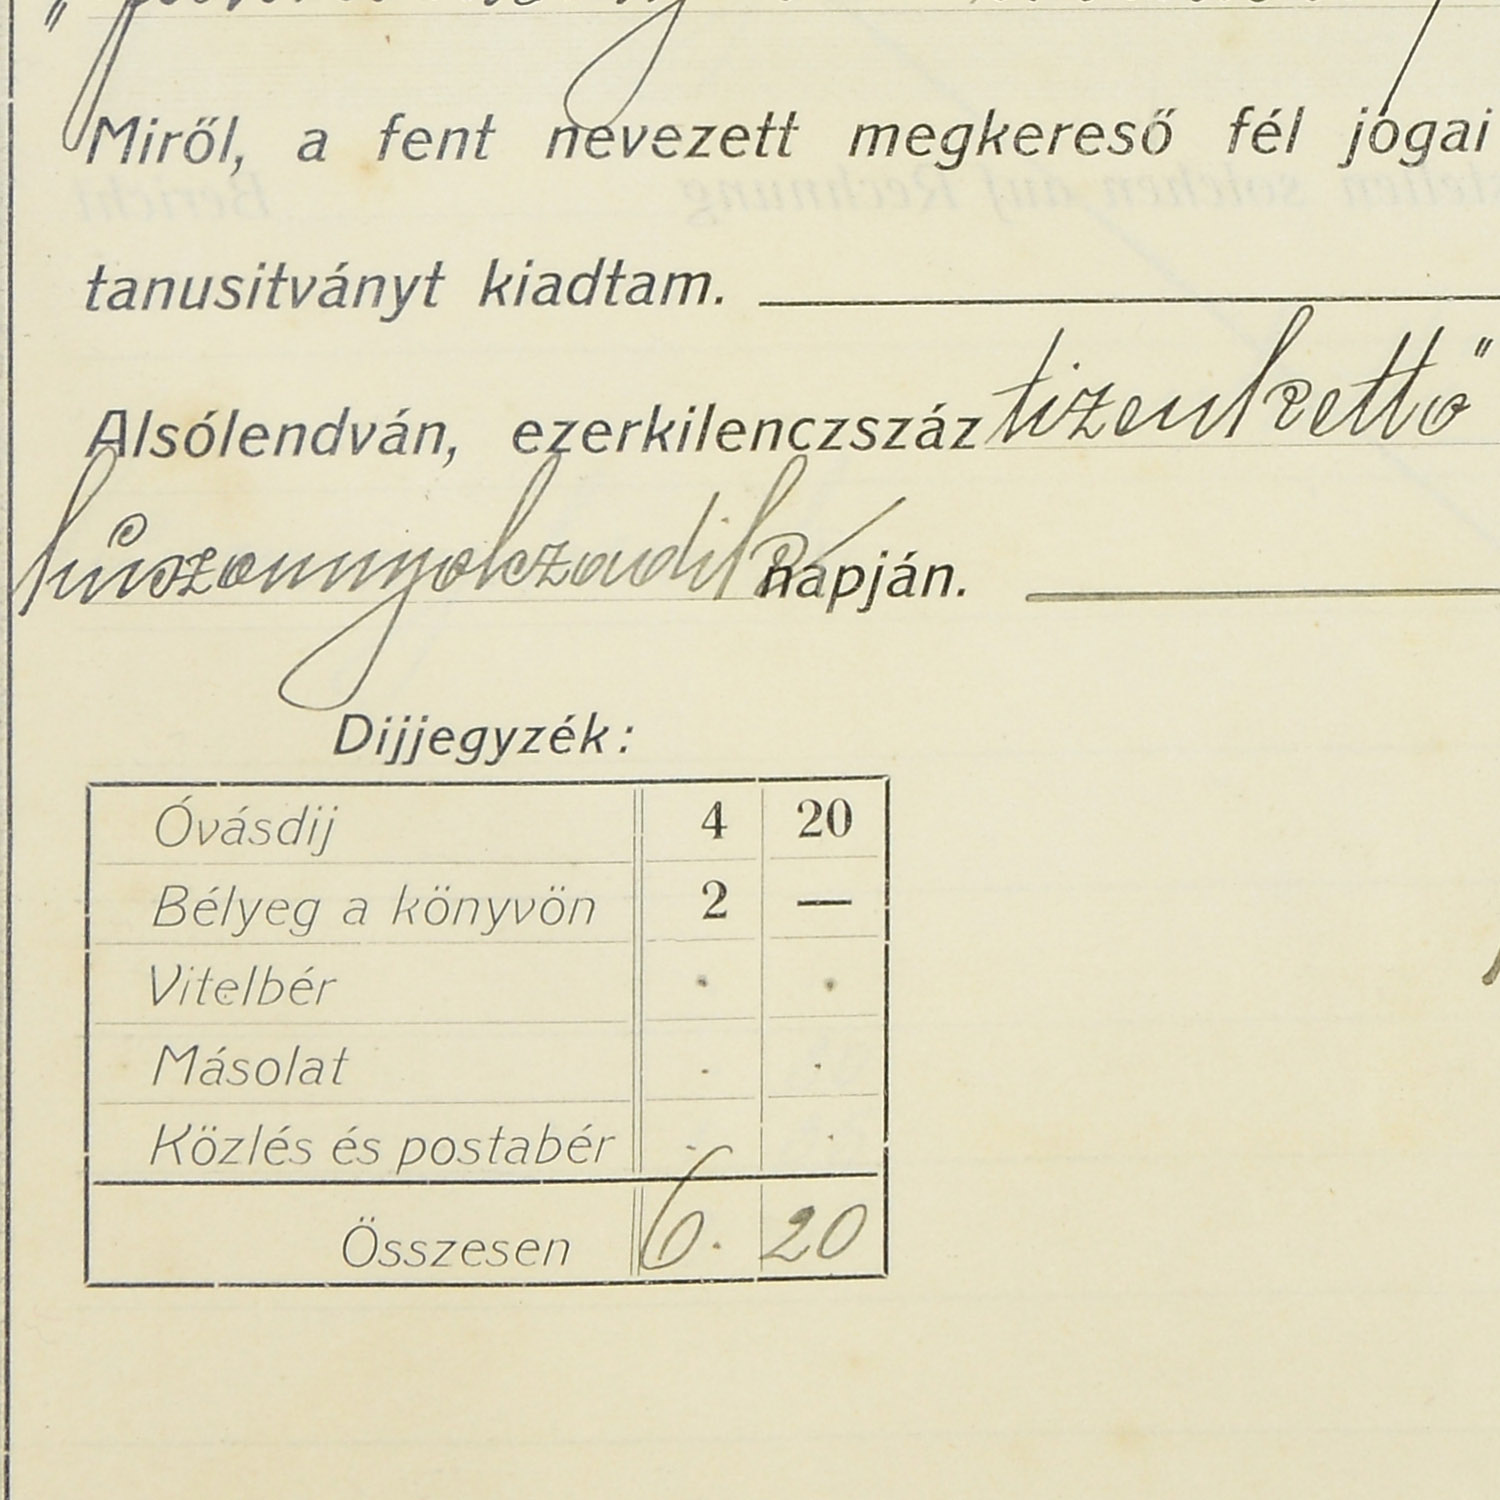 Miről, a fent nevezett megkereső fél jogai
tanusitványt kiadtam.
Alsólendván, ezerkilenczszáz tizenkettő"
húszonnyolczadik napján.
Dijjegyzék:
Óvásdij 4 20
Bélyeg a könyvön 2 —
Vitelbér . .
Másolat . .
Közlés és postabér . .
Összesen 6. 20